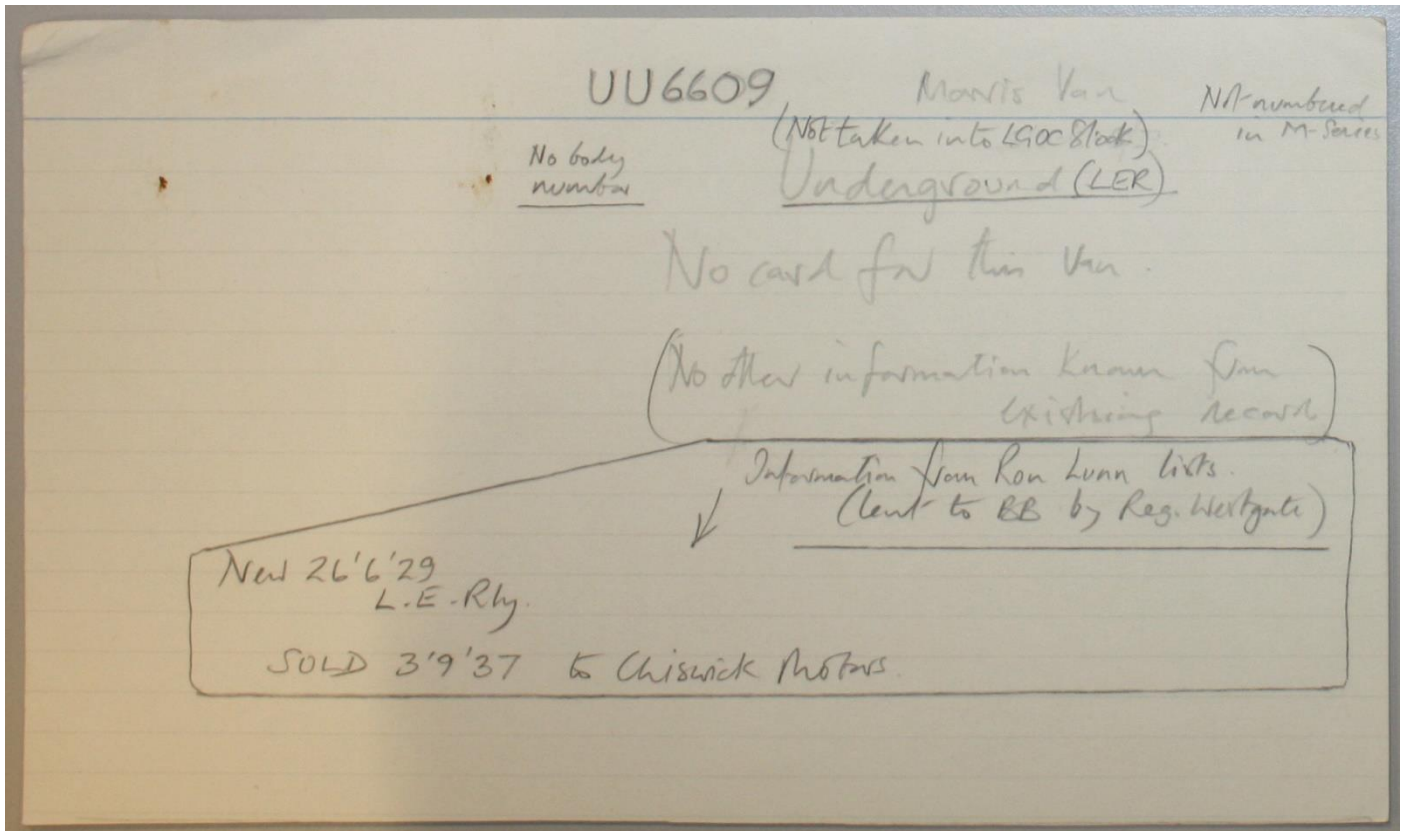 UU6609 Morris Van Not numbered
in M-Series
(Not taken into LGOC Stock)
No body
number
Underground (LER)
No card for this Van.
(No other information known from
existing record)
Information from Ron Lunn lists.
(lent to BB by Reg. Westgate)
New 26'6'29
L.E.Rly.
SOLD 3'9'37 to Chiswick Motors.